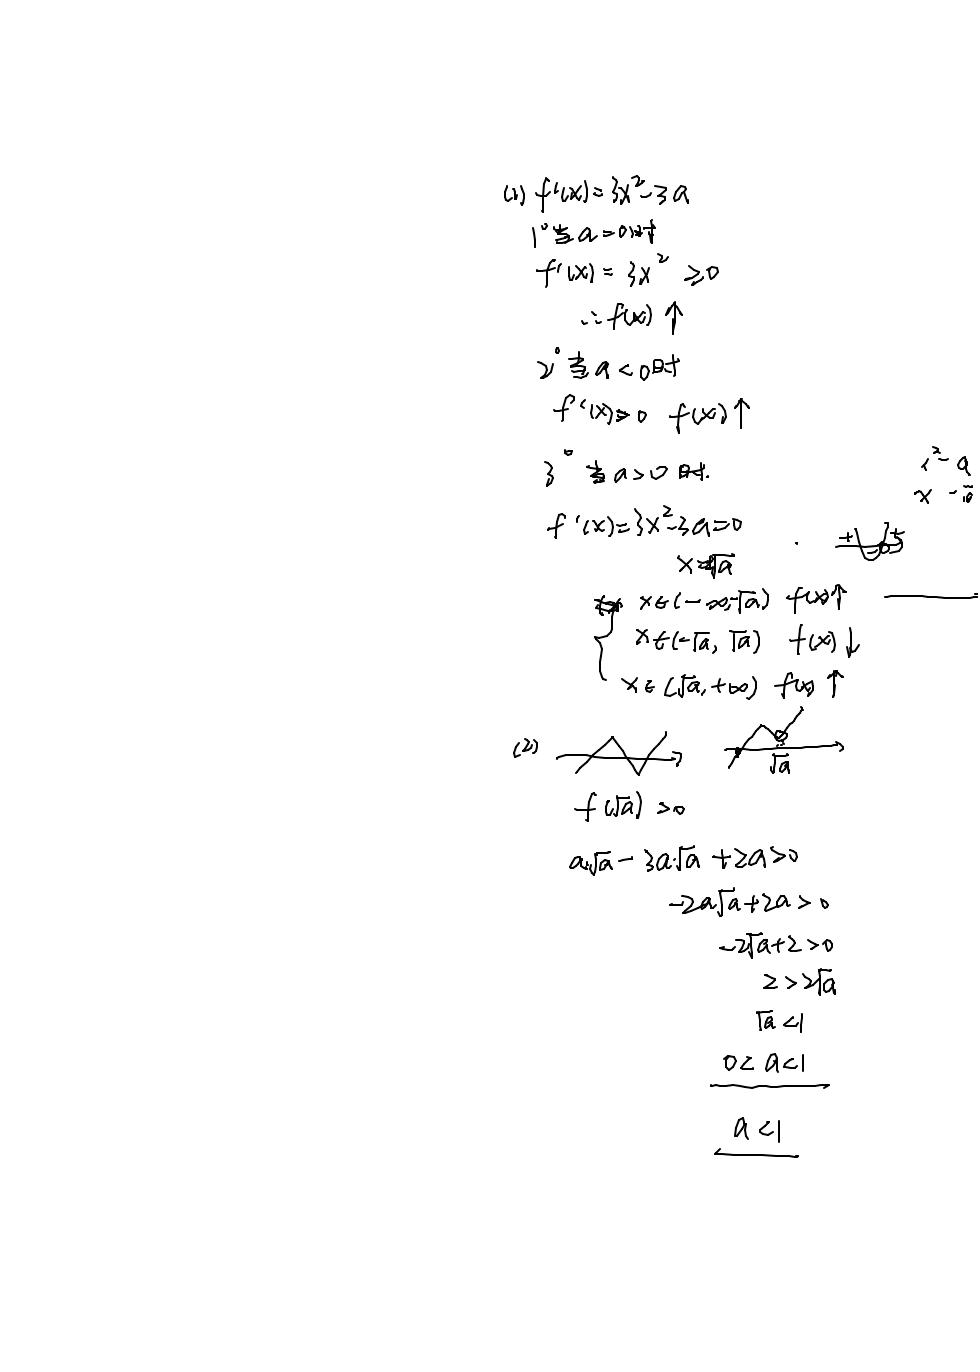 (1) f'(x)=3x²-3a
1° 当a=0时
f'(x)=3x² ≥0
∴f(x)↑
2° 当a<0时
f'(x)>0 f(x)↑
3° 当a>0时.
x²-a
x -√a
f'(x)=3x²-3a=0
+ - +
x=±√a
x∈(-∞,-√a) f(x)↑
x∈(-√a, √a) f(x)↓
x∈(√a,+∞) f(x)↑
(2)
√a
f(√a)>0
a√a-3a√a+2a>0
-2a√a+2a>0
-2√a+2>0
2>2√a
√a<1
0<a<1
a<1